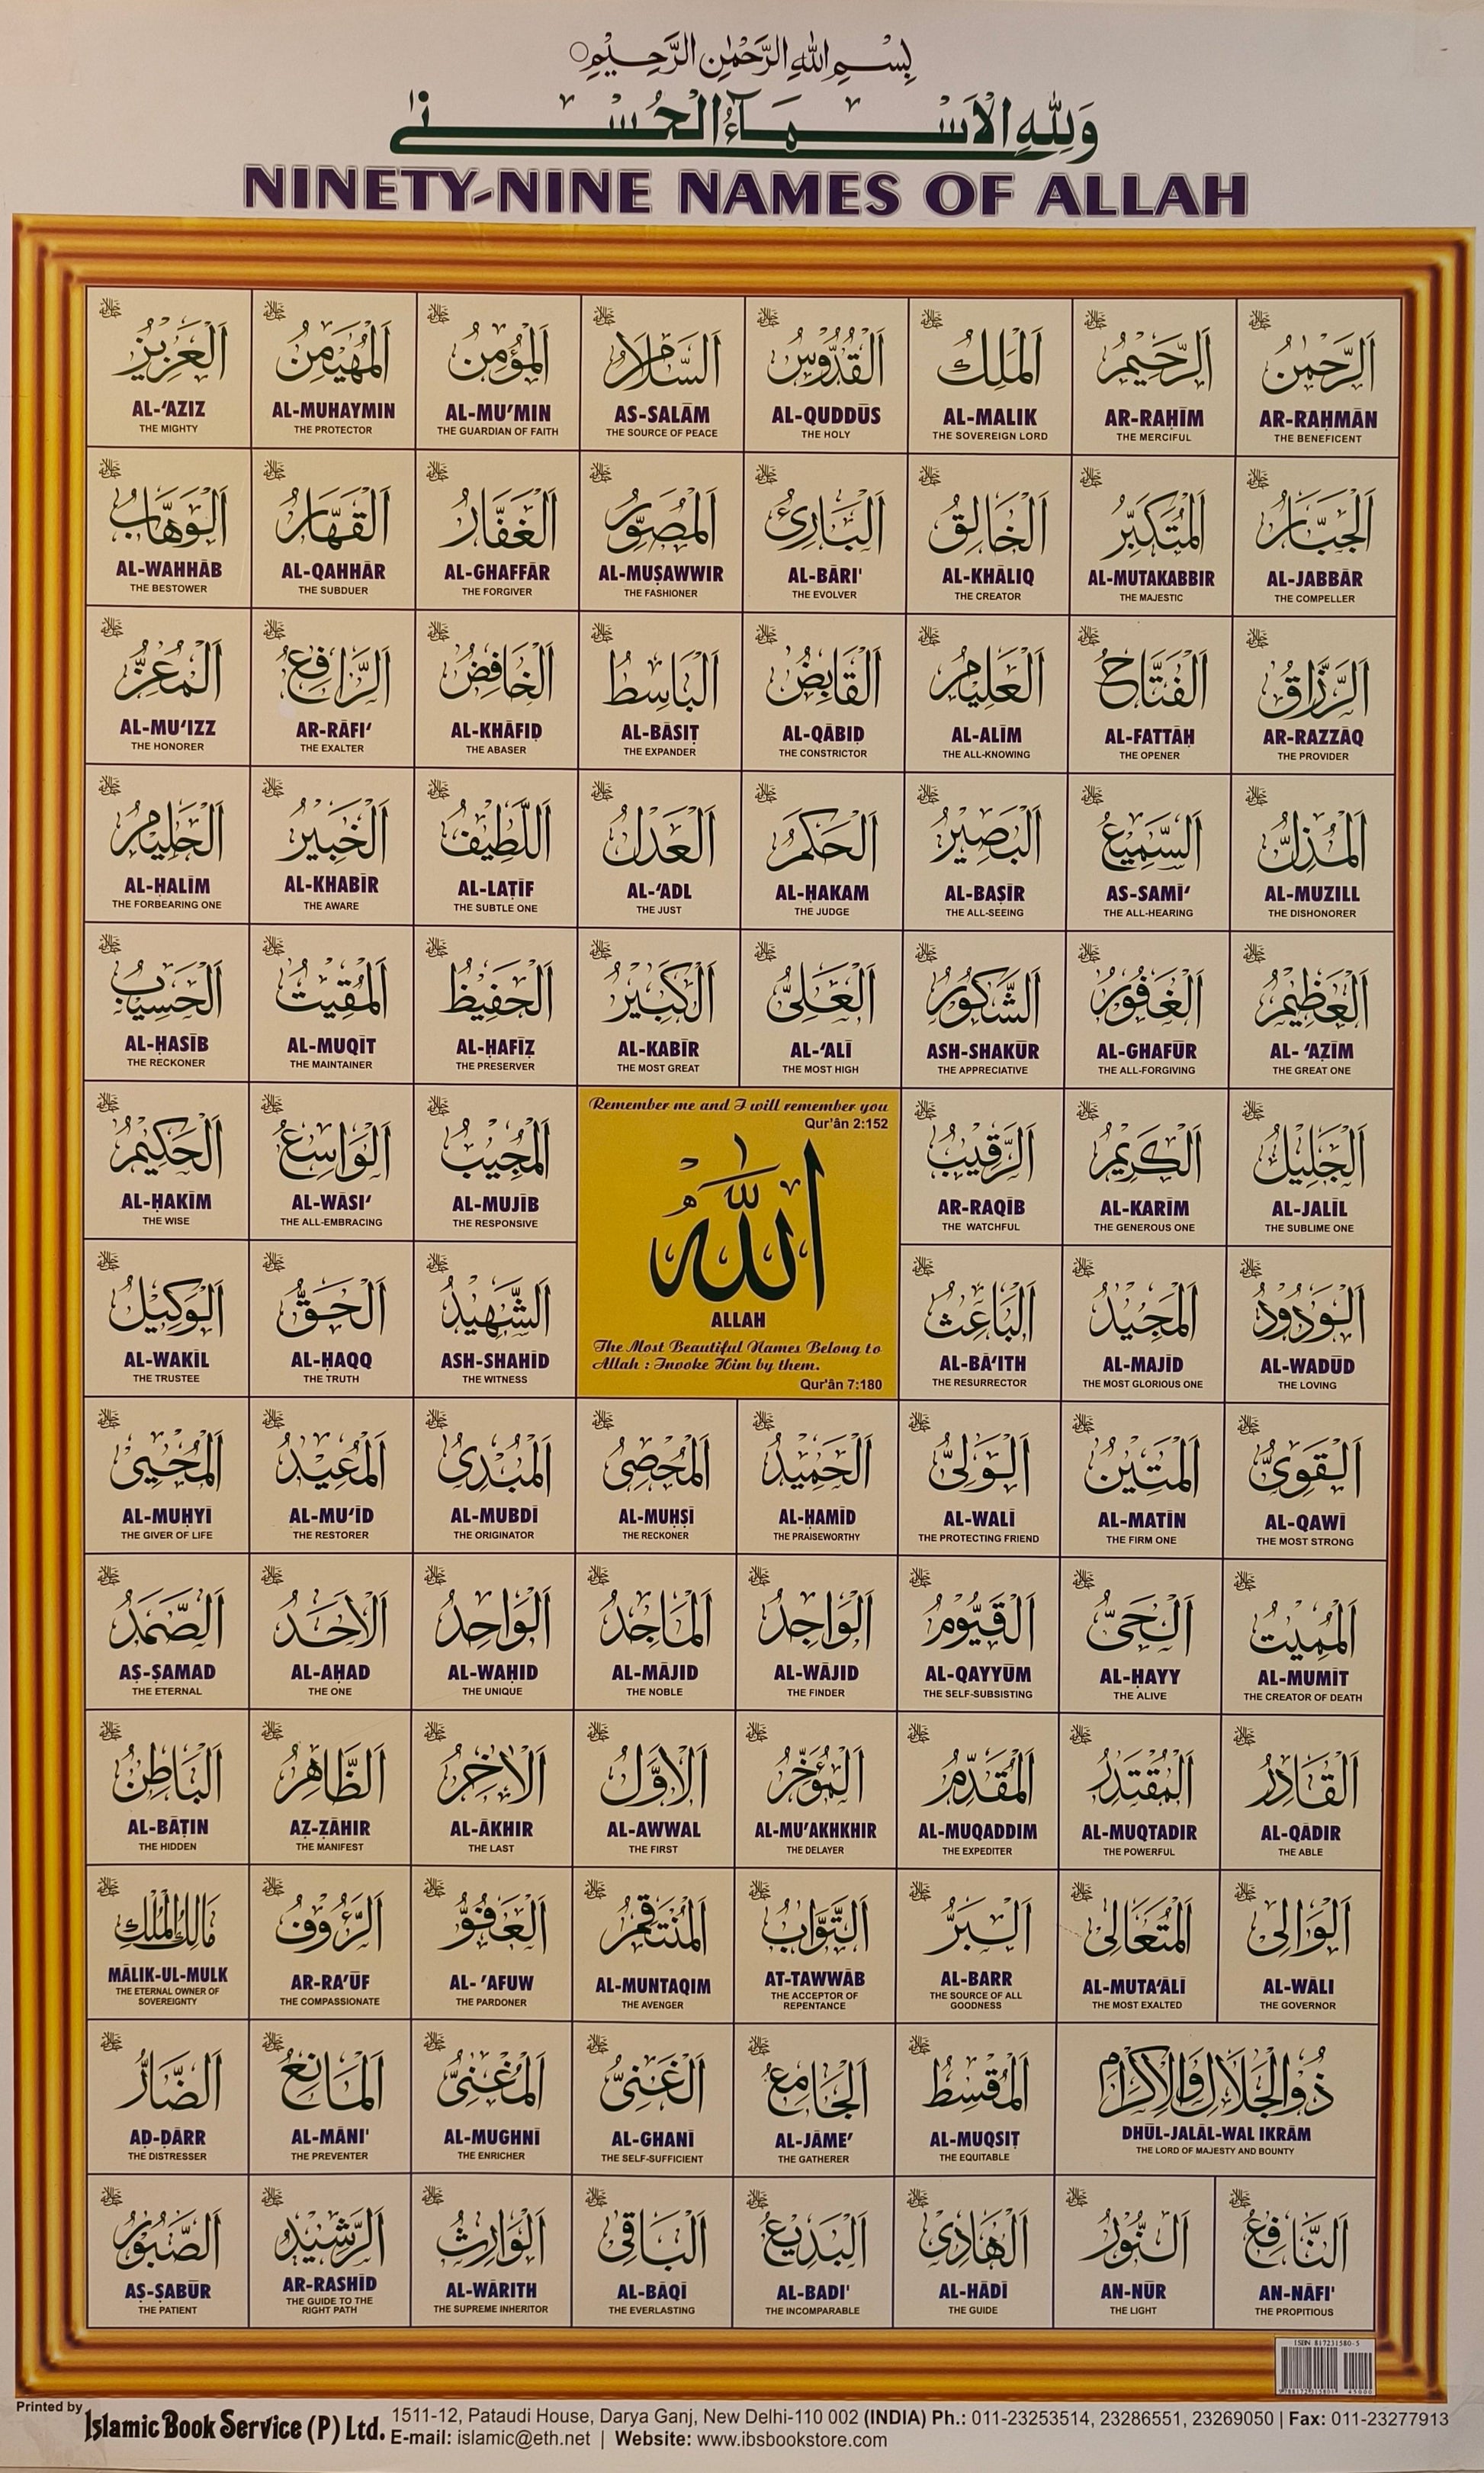 بِسْمِ اللهِ الرَّحْمٰنِ الرَّحِيْمِ
وَلِلّٰهِ الْاَسْمَآءُ الْحُسْنٰى
NINETY-NINE NAMES OF ALLAH
اَلرَّحْمٰنُ
AR-RAḤMĀN
THE BENEFICENT
اَلرَّحِيْمُ
AR-RAḤĪM
THE MERCIFUL
اَلْمَلِكُ
AL-MALIK
THE SOVEREIGN LORD
اَلْقُدُّوْسُ
AL-QUDDŪS
THE HOLY
اَلسَّلَامُ
AS-SALĀM
THE SOURCE OF PEACE
اَلْمُؤْمِنُ
AL-MU’MIN
THE GUARDIAN OF FAITH
اَلْمُهَيْمِنُ
AL-MUHAYMIN
THE PROTECTOR
اَلْعَزِيْزُ
AL-‘AZIZ
THE MIGHTY
اَلْجَبَّارُ
AL-JABBĀR
THE COMPELLER
اَلْمُتَكَبِّرُ
AL-MUTAKABBIR
THE MAJESTIC
اَلْخَالِقُ
AL-KHĀLIQ
THE CREATOR
اَلْبَارِئُ
AL-BĀRI'
THE EVOLVER
اَلْمُصَوِّرُ
AL-MUṢAWWIR
THE FASHIONER
اَلْغَفَّارُ
AL-GHAFFĀR
THE FORGIVER
اَلْقَهَّارُ
AL-QAHHĀR
THE SUBDUER
اَلْوَهَّابُ
AL-WAHHĀB
THE BESTOWER
اَلرَّزَّاقُ
AR-RAZZĀQ
THE PROVIDER
اَلْفَتَّاحُ
AL-FATTĀḤ
THE OPENER
اَلْعَلِيْمُ
AL-ALĪM
THE ALL-KNOWING
اَلْقَابِضُ
AL-QĀBIḌ
THE CONSTRICTOR
اَلْبَاسِطُ
AL-BĀSIṬ
THE EXPANDER
اَلْخَافِضُ
AL-KHĀFIḌ
THE ABASER
اَلرَّافِعُ
AR-RĀFI‘
THE EXALTER
اَلْمُعِزُّ
AL-MU‘IZZ
THE HONORER
اَلْمُذِلُّ
AL-MUZILL
THE DISHONORER
اَلسَّمِيْعُ
AS-SAMĪ‘
THE ALL-HEARING
اَلْبَصِيْرُ
AL-BAṢĪR
THE ALL-SEEING
اَلْحَكَمُ
AL-ḤAKAM
THE JUDGE
اَلْعَدْلُ
AL-‘ADL
THE JUST
اَللَّطِيْفُ
AL-LAṬĪF
THE SUBTLE ONE
اَلْخَبِيْرُ
AL-KHABĪR
THE AWARE
اَلْحَلِيْمُ
AL-ḤALĪM
THE FORBEARING ONE
اَلْعَظِيْمُ
AL- ‘AẒĪM
THE GREAT ONE
اَلْغَفُوْرُ
AL-GHAFŪR
THE ALL-FORGIVING
اَلشَّكُوْرُ
ASH-SHAKŪR
THE APPRECIATIVE
اَلْعَلِىُّ
AL-‘ALĪ
THE MOST HIGH
اَلْكَبِيْرُ
AL-KABĪR
THE MOST GREAT
اَلْحَفِيْظُ
AL-ḤAFĪẒ
THE PRESERVER
اَلْمُقِيْتُ
AL-MUQĪT
THE MAINTAINER
اَلْحَسِيْبُ
AL-ḤASĪB
THE RECKONER
اَلْجَلِيْلُ
AL-JALĪL
THE SUBLIME ONE
اَلْكَرِيْمُ
AL-KARĪM
THE GENEROUS ONE
اَلرَّقِيْبُ
AR-RAQĪB
THE WATCHFUL
Remember me and I will remember you
Qur'ân 2:152
اَللّٰهُ
ALLAH
The Most Beautiful Names Belong to
Allah : Invoke Him by them.
Qur'ân 7:180
اَلْمُجِيْبُ
AL-MUJĪB
THE RESPONSIVE
اَلْوَاسِعُ
AL-WĀSI‘
THE ALL-EMBRACING
اَلْحَكِيْمُ
AL-ḤAKĪM
THE WISE
اَلْوَدُوْدُ
AL-WADŪD
THE LOVING
اَلْمَجِيْدُ
AL-MAJĪD
THE MOST GLORIOUS ONE
اَلْبَاعِثُ
AL-BĀ‘ITH
THE RESURRECTOR
اَلشَّهِيْدُ
ASH-SHAHĪD
THE WITNESS
اَلْحَقُّ
AL-ḤAQQ
THE TRUTH
اَلْوَكِيْلُ
AL-WAKĪL
THE TRUSTEE
اَلْقَوِىُّ
AL-QAWĪ
THE MOST STRONG
اَلْمَتِيْنُ
AL-MATĪN
THE FIRM ONE
اَلْوَلِىُّ
AL-WALĪ
THE PROTECTING FRIEND
اَلْحَمِيْدُ
AL-ḤAMĪD
THE PRAISEWORTHY
اَلْمُحْصِىُ
AL-MUḤṢĪ
THE RECKONER
اَلْمُبْدِىُ
AL-MUBDĪ
THE ORIGINATOR
اَلْمُعِيْدُ
AL-MU‘ĪD
THE RESTORER
اَلْمُحْيِىْ
AL-MUḤYĪ
THE GIVER OF LIFE
اَلْمُمِيْتُ
AL-MUMĪT
THE CREATOR OF DEATH
اَلْحَىُّ
AL-ḤAYY
THE ALIVE
اَلْقَيُّوْمُ
AL-QAYYŪM
THE SELF-SUBSISTING
اَلْوَاجِدُ
AL-WĀJID
THE FINDER
اَلْمَاجِدُ
AL-MĀJID
THE NOBLE
اَلْوَاحِدُ
AL-WAḤID
THE UNIQUE
اَلْاَحَدُ
AL-AḤAD
THE ONE
اَلصَّمَدُ
AṢ-ṢAMAD
THE ETERNAL
اَلْقَادِرُ
AL-QĀDIR
THE ABLE
اَلْمُقْتَدِرُ
AL-MUQTADIR
THE POWERFUL
اَلْمُقَدِّمُ
AL-MUQADDIM
THE EXPEDITER
اَلْمُؤَخِّرُ
AL-MU’AKHKHIR
THE DELAYER
اَلْاَوَّلُ
AL-AWWAL
THE FIRST
اَلْاٰخِرُ
AL-ĀKHIR
THE LAST
اَلظَّاهِرُ
AẒ-ẒĀHIR
THE MANIFEST
اَلْبَاطِنُ
AL-BĀṬIN
THE HIDDEN
اَلْوَالِىْ
AL-WĀLI
THE GOVERNOR
اَلْمُتَعَالِىْ
AL-MUTA‘ĀLĪ
THE MOST EXALTED
اَلْبَرُّ
AL-BARR
THE SOURCE OF ALL
GOODNESS
اَلتَّوَّابُ
AT-TAWWĀB
THE ACCEPTOR OF
REPENTANCE
اَلْمُنْتَقِمُ
AL-MUNTAQIM
THE AVENGER
اَلْعَفُوُّ
AL- ’AFUW
THE PARDONER
اَلرَّءُوْفُ
AR-RA’ŪF
THE COMPASSIONATE
مَالِكُ الْمُلْكِ
MĀLIK-UL-MULK
THE ETERNAL OWNER OF
SOVEREIGNTY
ذُوالْجَلَالِ وَالْاِكْرَامِ
DHŪL-JALĀL-WAL IKRĀM
THE LORD OF MAJESTY AND BOUNTY
اَلْمُقْسِطُ
AL-MUQSIṬ
THE EQUITABLE
اَلْجَامِعُ
AL-JĀME’
THE GATHERER
اَلْغَنِىُّ
AL-GHANĪ
THE SELF-SUFFICIENT
اَلْمُغْنِىُّ
AL-MUGHNĪ
THE ENRICHER
اَلْمَانِعُ
AL-MĀNI'
THE PREVENTER
اَلضَّارُّ
AḌ-ḌĀRR
THE DISTRESSER
اَلنَّافِعُ
AN-NĀFI'
THE PROPITIOUS
اَلنُّوْرُ
AN-NŪR
THE LIGHT
اَلْهَادِىْ
AL-HĀDĪ
THE GUIDE
اَلْبَدِيْعُ
AL-BADI'
THE INCOMPARABLE
اَلْبَاقِىْ
AL-BĀQĪ
THE EVERLASTING
اَلْوَارِثُ
AL-WĀRITH
THE SUPREME INHERITOR
اَلرَّشِيْدُ
AR-RASHĪD
THE GUIDE TO THE
RIGHT PATH
اَلصَّبُوْرُ
AṢ-ṢABŪR
THE PATIENT
ISBN 817231580-5
Printed by Islamic Book Service (P) Ltd.
1511-12, Pataudi House, Darya Ganj, New Delhi-110 002 (INDIA) Ph.: 011-23253514, 23286551, 23269050 | Fax: 011-23277913
E-mail: islamic@eth.net | Website: www.ibsbookstore.com